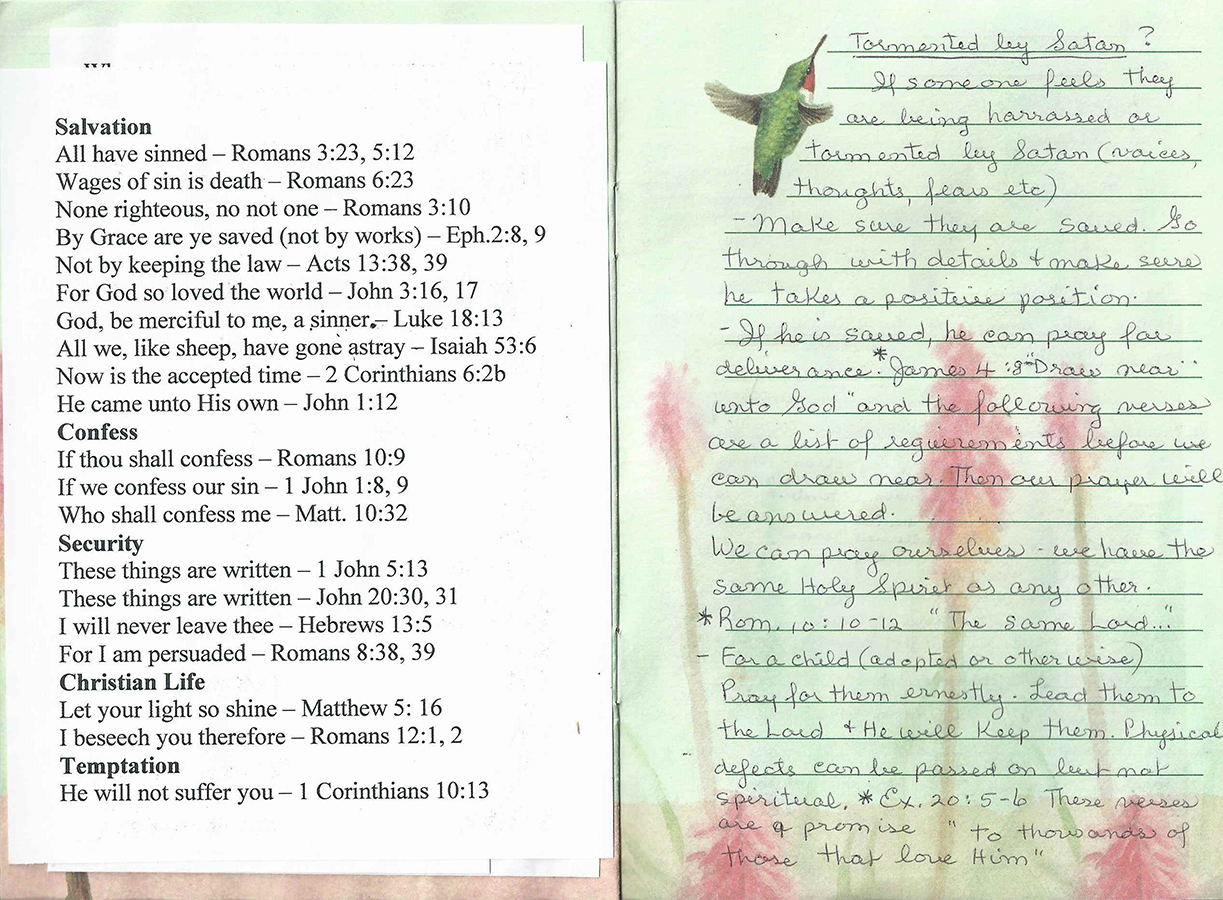 Salvation
All have sinned – Romans 3:23, 5:12
Wages of sin is death – Romans 6:23
None righteous, no not one – Romans 3:10
By Grace are ye saved (not by works) – Eph.2:8, 9
Not by keeping the law – Acts 13:38, 39
For God so loved the world – John 3:16, 17
God, be merciful to me, a sinner – Luke 18:13
All we, like sheep, have gone astray – Isaiah 53:6
Now is the accepted time – 2 Corinthians 6:2b
He came unto His own – John 1:12
Confess
If thou shall confess – Romans 10:9
If we confess our sin – 1 John 1:8, 9
Who shall confess me – Matt. 10:32
Security
These things are written – 1 John 5:13
These things are written – John 20:30, 31
I will never leave thee – Hebrews 13:5
For I am persuaded – Romans 8:38, 39
Christian Life
Let your light so shine – Matthew 5: 16
I beseech you therefore – Romans 12:1, 2
Temptation
He will not suffer you – 1 Corinthians 10:13
Tormented by Satan?
If someone feels they
are being harrassed or
tormented by Satan (voices,
thoughts, fears etc)
- Make sure they are saved. Go
through with details & make sure
he takes a positive position.
- If he is saved, he can pray for
deliverance. *James 4:8 "Draw near
unto God" and the following verses
are a list of requirements before we
can draw near. Then our prayer will
be answered.
We can pray ourselves - we have the
same Holy Spirit as any other.
*Rom. 10:10-12 "The same Lord..."
- For a child (adopted or otherwise)
Pray for them ernestly. Lead them to
the Lord & He will keep them. Physical
defects can be passed on but not
spiritual. *Ex. 20:5-6 These verses
are a promise "to thousands of
those that love Him"